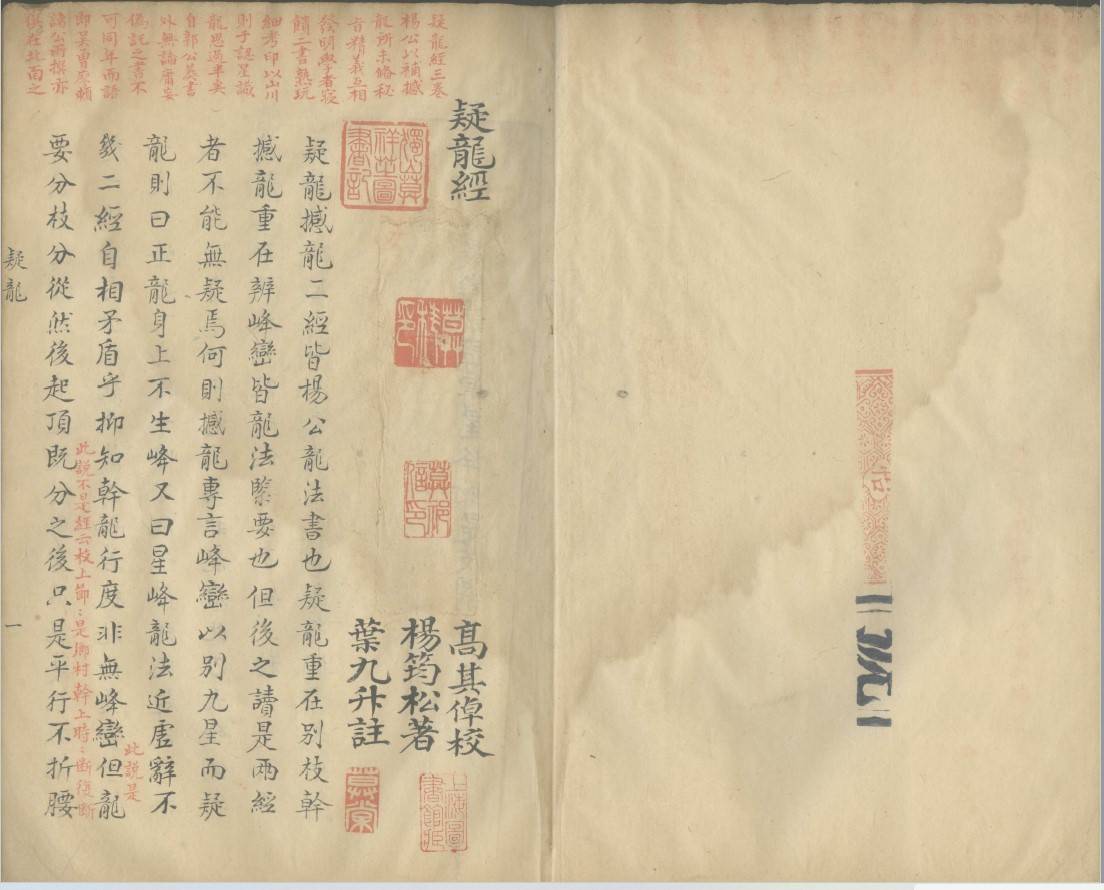 疑龍經
高其倬校
楊筠松著
葉九升註
疑龍撼龍二經皆楊公龍法書也疑龍重在別枝幹
撼龍重在辨峰巒皆龍法緊要也但後之讀是兩經
者不能無疑焉何則撼龍專言峰巒以別九星而疑
龍則曰正龍身上不生峰又曰星峰龍法近虛辭不
幾二經自相矛盾乎抑知幹龍行度非無峰巒但龍
此說是
要分枝分從然後起頂既分之後只是平行不折腰
此說不是經云枝上節:是鄉村幹上時:斷復斷
疑龍
一
疑龍經三卷
楊公以補撼
龍所未備秘
旨精義互相
發明學者寢
饋二書熟玩
細考印以山川
則于認星識
龍思過半矣
自郭公葬書
外無論庸妄
偽託之書不
可同年而語
即吳曾廖賴
諸公所撰亦
俱在北面之
獨山莫
祥芝圖
書記
莫棠
上海圖
書館藏